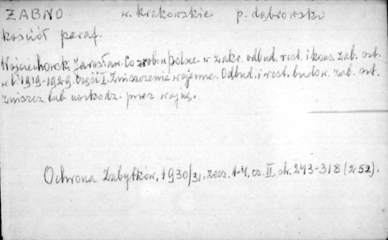 ŻABNO w. krakowskie p. dąbrowski
kościół paraf.
Wojciechowski Jarosław. Co zrobiła Polska w zakr. odbud. rest. i kons. zab. szt.
w l. 1919-1929. Część I. Zniszczenia wojenne. Odbud. i rest. budow. zab. szt.
zniszcz lub uszkodz. przez wojnę.
Ochrona Zabytków, 1930/31, zesz. 1-4, cz. II, str. 243-318 (252).